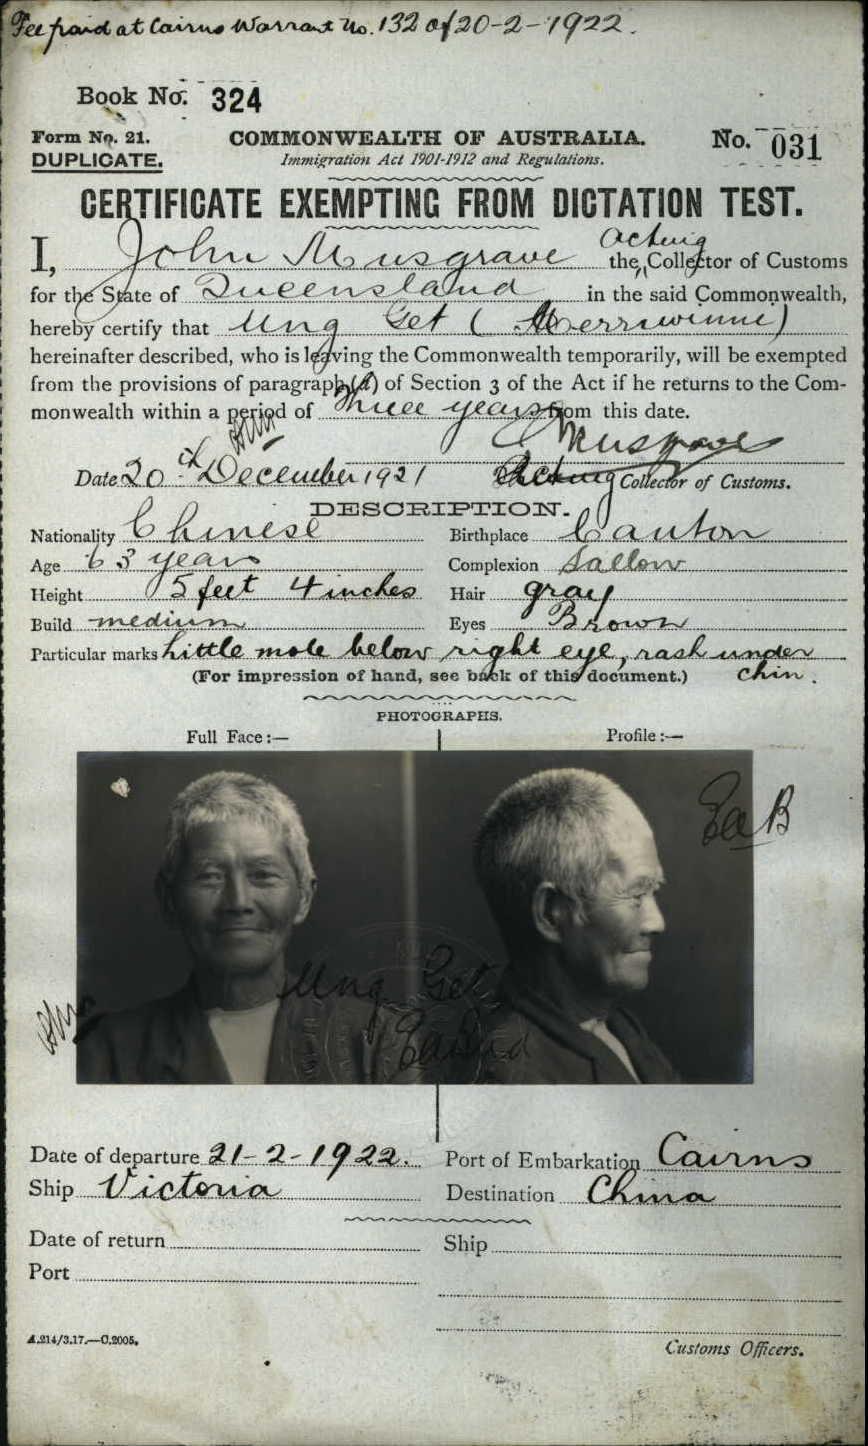 Fee paid at Cairns Warrant No. 132 of 20-2-1922.
Book No. 324
Form No. 21.
DUPLICATE.
COMMONWEALTH OF AUSTRALIA.
Immigration Act 1901-1912 and Regulations.
No. 031
CERTIFICATE EXEMPTING FROM DICTATION TEST.
I, John Musgrave the Acting Collector of Customs
for the State of Queensland in the said Commonwealth,
hereby certify that Ung Get (Merriwinni)
hereinafter described, who is leaving the Commonwealth temporarily, will be exempted
from the provisions of paragraph (a) of Section 3 of the Act if he returns to the Com-
monwealth within a period of Three years from this date.
Musgrave
Date 20th December 1921 Acting Collector of Customs.
DESCRIPTION.
Nationality Chinese Birthplace Canton
Age 63 years Complexion Sallow
Height 5 feet 4 inches Hair gray
Build medium Eyes Brown
Particular marks Little mole below right eye, rash under
chin.
(For impression of hand, see back of this document.)
PHOTOGRAPHS.
Full Face:— Profile:—
EaB
Ung Get
Date of departure 21-2-1922. Port of Embarkation Cairns
Ship Victoria Destination China
Date of return Ship
Port
A.214/3.17.—C.2005.
Customs Officers.